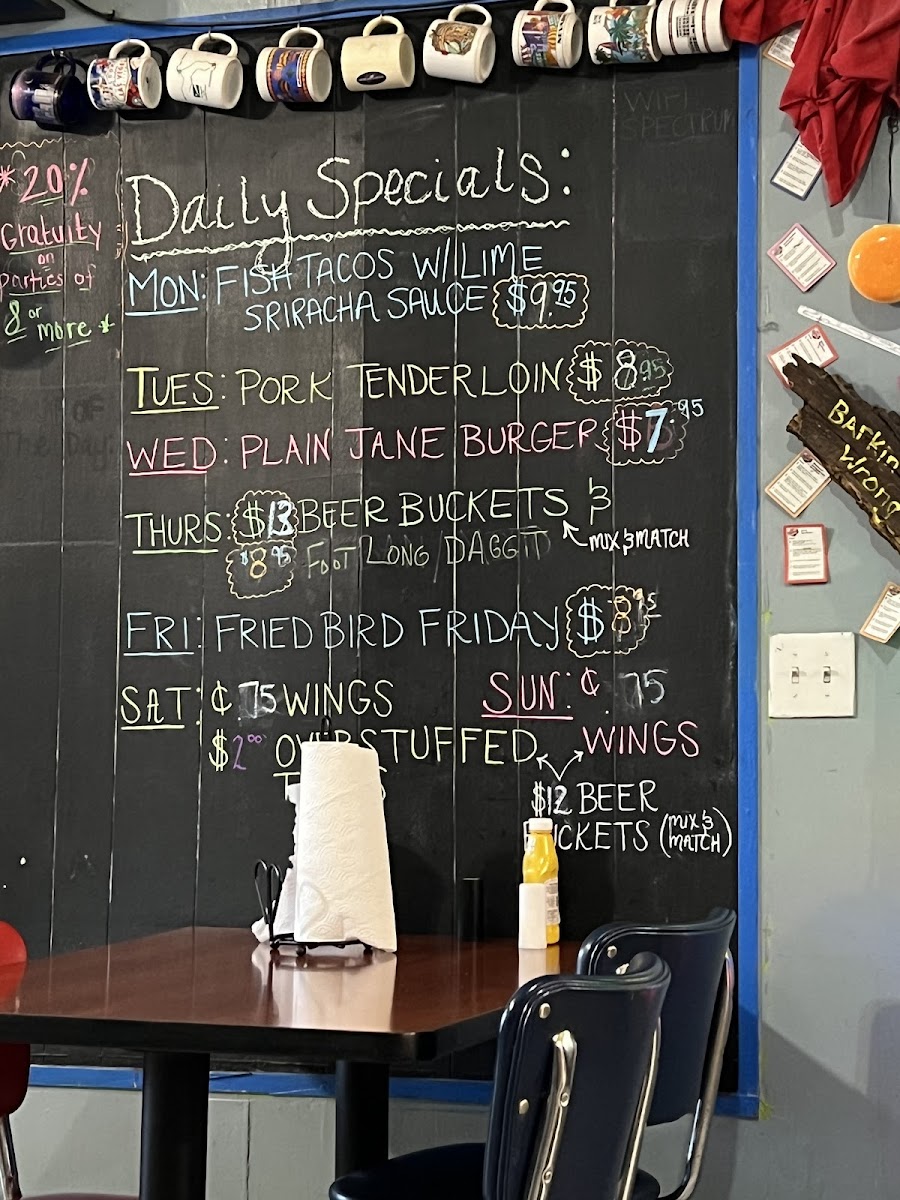 WIFI
SPECTRUM
* 20%
Gratuity
on
parties of
8 or
more *
OF
The Day:
Daily Specials:
MON: FISH TACOS W/LIME
SRIRACHA SAUCE $9.95
TUES: PORK TENDERLOIN $8.95
WED: PLAIN JANE BURGER $7.95
THURS: $13 BEER BUCKETS &
MIX & MATCH
$8.95 FOOT LONG DAGGIT
FRI: FRIED BIRD FRIDAY $8.95
SAT: ¢.75 WINGS
$2.00 OVERSTUFFED
SUN: ¢.75
WINGS
$12 BEER
BUCKETS (MIX &
MATCH)
Barkin
Wrong